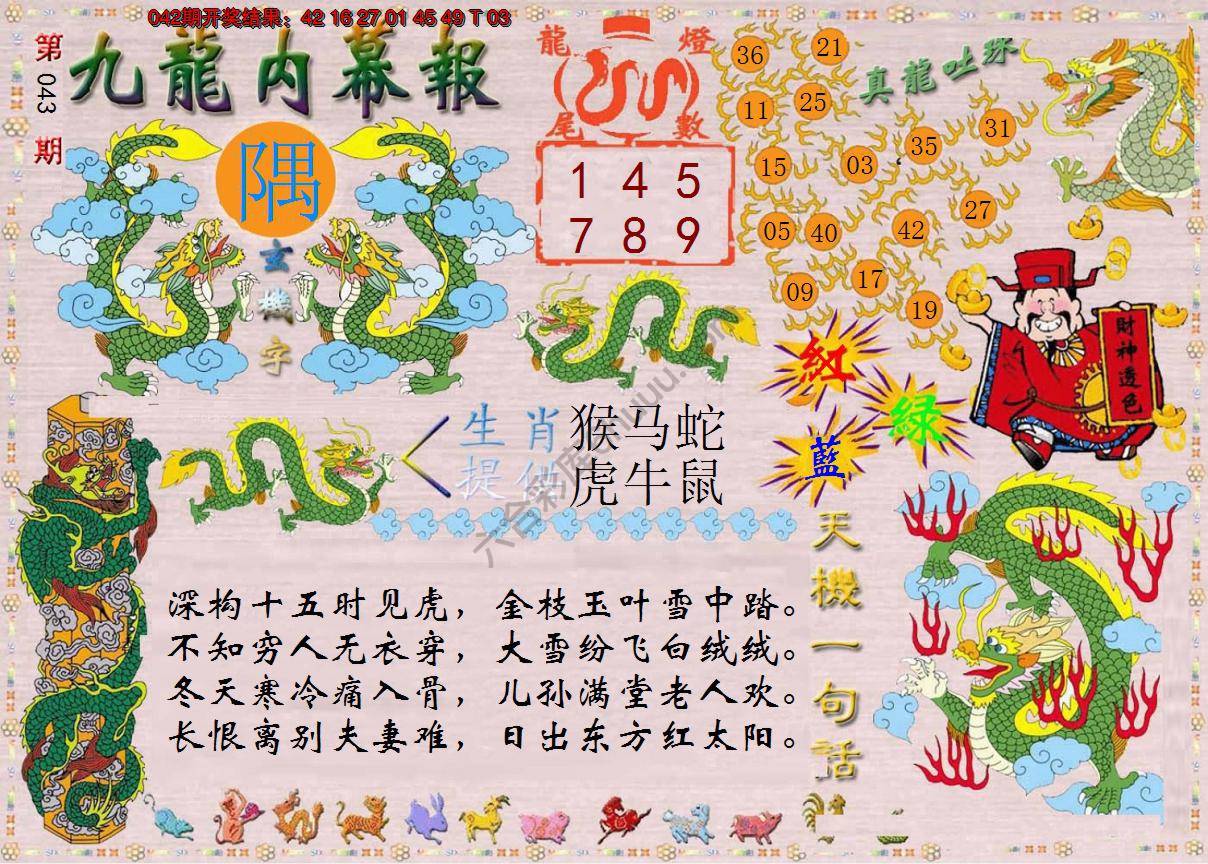 042期开奖结果：42 16 27 01 45 49 T 03
第043期
九龍内幕報
隅
玄機字
龍燈
尾數
1 4 5
7 8 9
真龍吐珠
36 21
11 25
15 03 35 31
05 40 42 27
09 17 19
財神透色
紅
綠
藍
生肖 猴马蛇
提供 虎牛鼠
天機一句話
深构十五时见虎，金枝玉叶雪中踏。
不知穷人无衣穿，大雪纷飞白绒绒。
冬天寒冷痛入骨，儿孙满堂老人欢。
长恨离别夫妻难，日出东方红太阳。